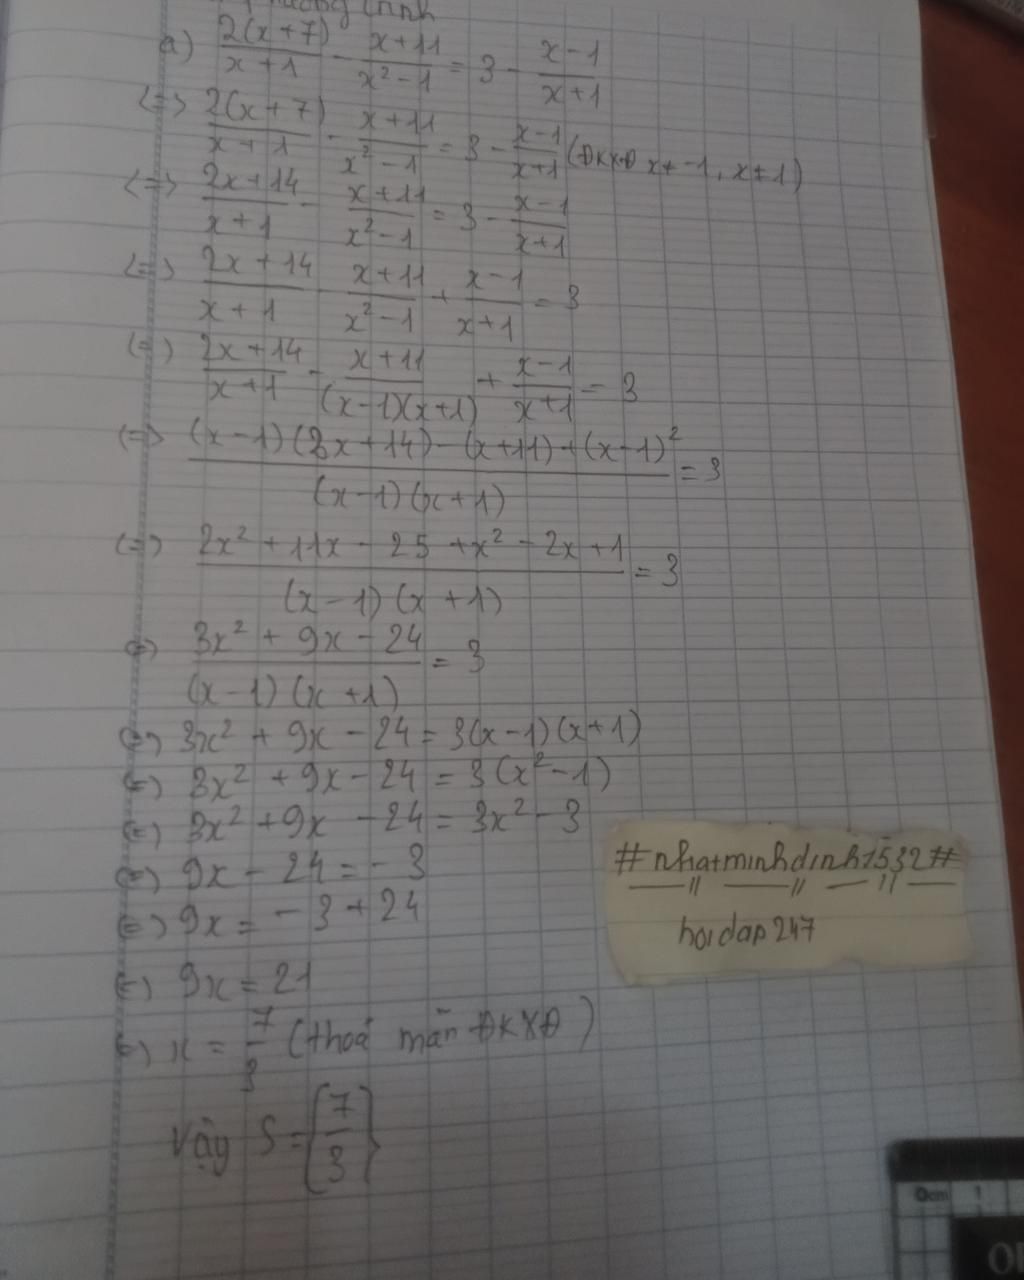 phương trình
a) 2(x+7)/(x+1) - (x+11)/(x²-1) = 3 - (x-1)/(x+1)
<=> 2(x+7)/(x+1) - (x+11)/(x²-1) = 3 - (x-1)/(x+1) (ĐKXĐ x ≠ -1, x ≠ 1)
<=> (2x+14)/(x+1) - (x+11)/(x²-1) = 3 - (x-1)/(x+1)
<=> (2x+14)/(x+1) - (x+11)/(x²-1) + (x-1)/(x+1) = 3
<=> (2x+14)/(x+1) - (x+11)/((x-1)(x+1)) + (x-1)/(x+1) = 3
<=> ((x-1)(2x+14) - (x+11) + (x-1)²)/((x-1)(x+1)) = 3
<=> (2x² + 11x - 25 + x² - 2x + 1)/((x-1)(x+1)) = 3
<=> (3x² + 9x - 24)/((x-1)(x+1)) = 3
<=> 3x² + 9x - 24 = 3(x-1)(x+1)
<=> 3x² + 9x - 24 = 3(x²-1)
<=> 3x² + 9x - 24 = 3x² - 3
<=> 9x - 24 = -3
<=> 9x = -3 + 24
<=> 9x = 21
<=> x = 7/3 (thoả mãn ĐKXĐ)
Vậy S = {7/3}
#nhatminhdinh1532#
hoidap247
0cm 1